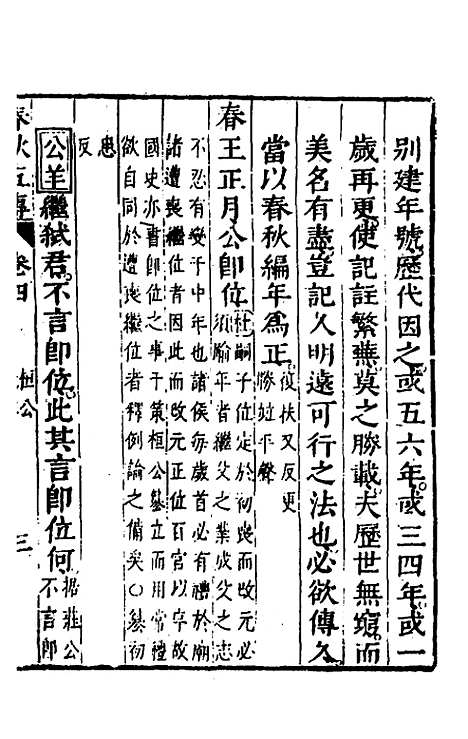 別建年號歷代因之或五六年或三四年或一
歲再更使記註繁蕪莫之勝載夫歷世無窮而
美名有盡豈記久明遠可行之法也必欲傳久
當以春秋編年爲正復扶又反更
勝並平聲
春王正月公卽位杜嗣子位定於初喪而改元必
須踰年者繼父之業成父之志
不忍有變于中年也諸侯每歲首必有禮於廟
諸遭喪繼位者因此而改元正位百官以序故
國史亦書卽位之事于策桓公簒立而用常禮
欲自同於遭喪繼位者釋例論之備矣○簒初
患
反
公羊繼弒君不言卽位此其言卽位何據莊公
不言卽
春秋五傳 卷四 桓公 三